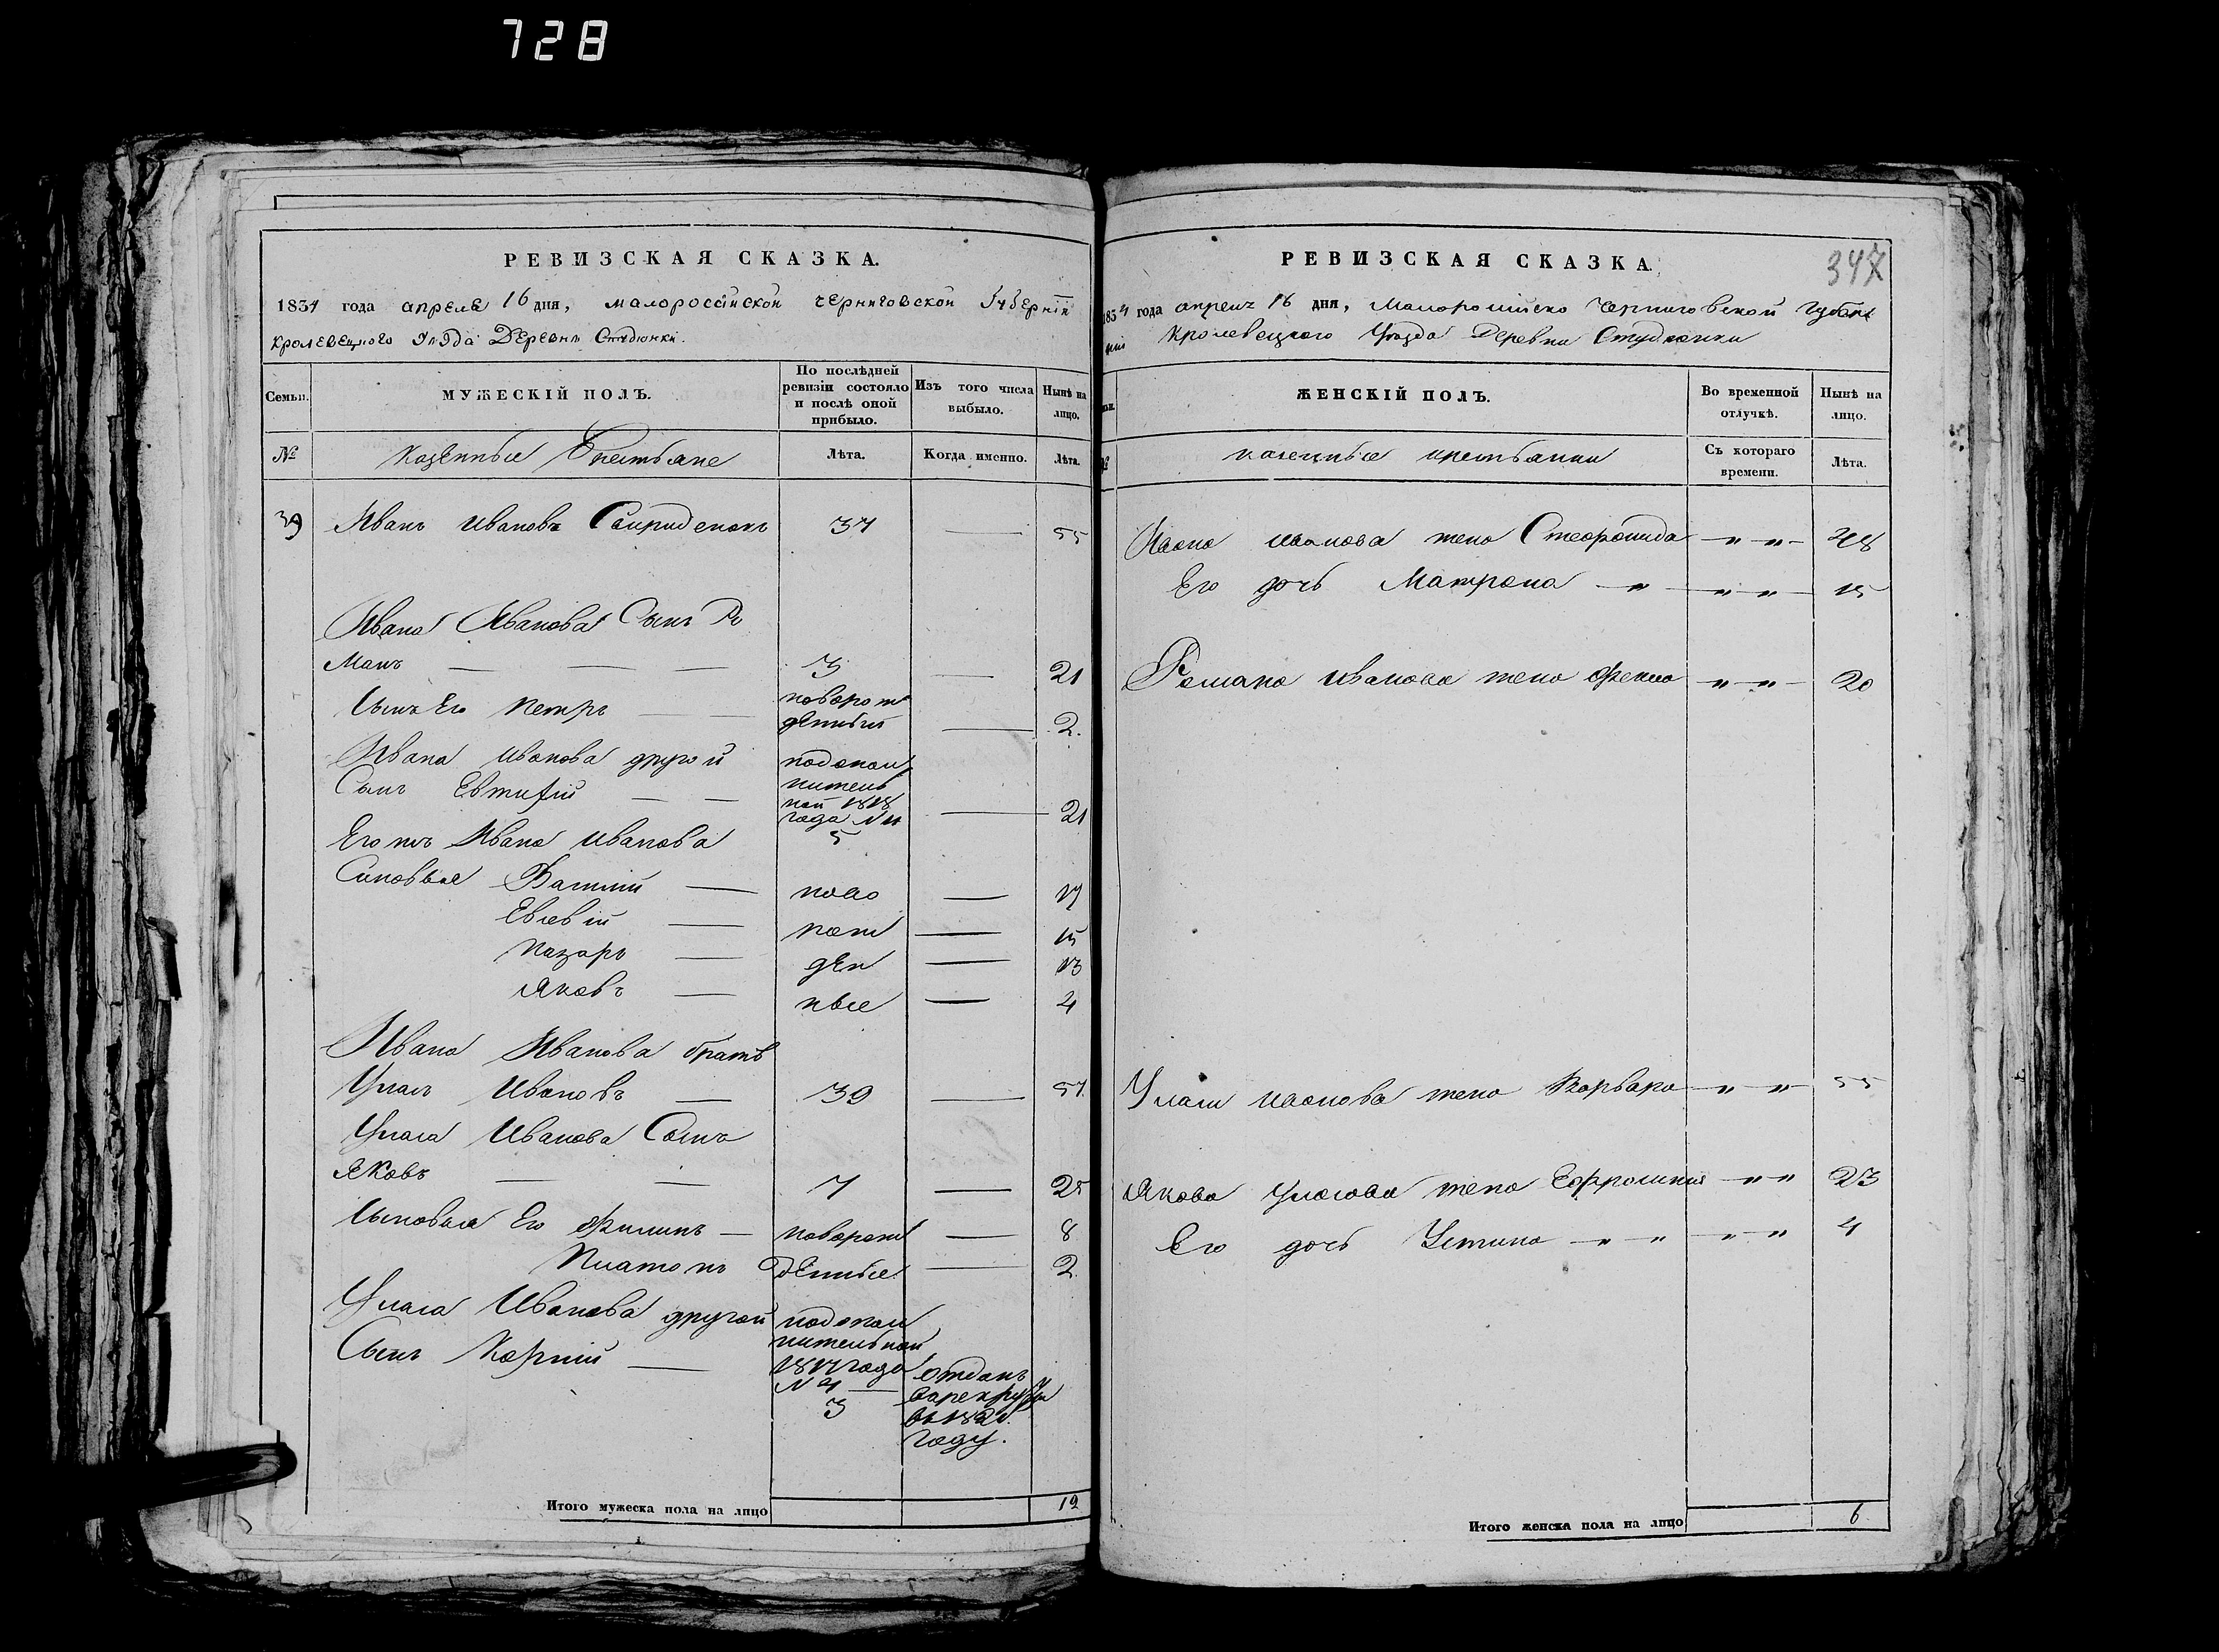 728
РЕВИЗСКАЯ СКАЗКА.
1834 года апреля 16 дня, малоросійской черниговской Губерніи
кролевецкого Уезда Деревни Студионки.
Семьи.
МУЖЕСКІЙ ПОЛЪ.
По послѣдней ревизіи состояло и послѣ оной прибыло.
Изъ того числа выбыло.
Нынѣ на лицо.
№
казенные Крестьяне
Лѣта.
Когда именно.
Лѣта.
39 Иванъ Ивановъ Спириденокъ 37 — 55
Ивана Иванова Сынъ Ро
манъ — — — 3 — 21
Сынъ Его Петръ — — новорож
денный — 2.
Ивана Иванова другой подопол
Сынъ Евтифій — — нитель
ной 1818
года №
— 21
5
Его жъ Ивана Иванова
Синовья Василій — ново — 17
Евсевій — рож — 15
Назаръ — ден — 13
Яковъ — ные — 4
Ивана Иванова братъ
Уласъ Ивановъ — 39 — 57.
Уласа Иванова Сынъ
Яковъ — — 7 — 25
Сыновья Его Филипъ — новорож — 8
Платонъ денные — 2
Уласа Иванова другой подопол
Сынъ Корній — нительной
1817 года отданъ
№ 4 — варекруты
3 въ 1821.
году.
Итого мужеска пола на лицо 12
РЕВИЗСКАЯ СКАЗКА.
347
1834 года апреля 16 дня, Малоросійско Черниговской Губер
ніи Кролевецкого Уезда Деревни Студионки
ЖЕНСКІЙ ПОЛЪ.
Во временной отлучкѣ.
Нынѣ на лицо.
№
казенные крестьянки
Съ котораго времени.
Лѣта.
Ивана Иванова жена Стеофанида — " — " — 48
Его дочь Матрона — " — " — " — 15
Романа Иванова жена Фекла — " — " — 20
Уласа Иванова жена Варвара — " — " — 55
Якова Уласова жена Ефросинія — " " 23
Его дочь Устина — " — " — " — " 4
Итого женска пола на лицо 6